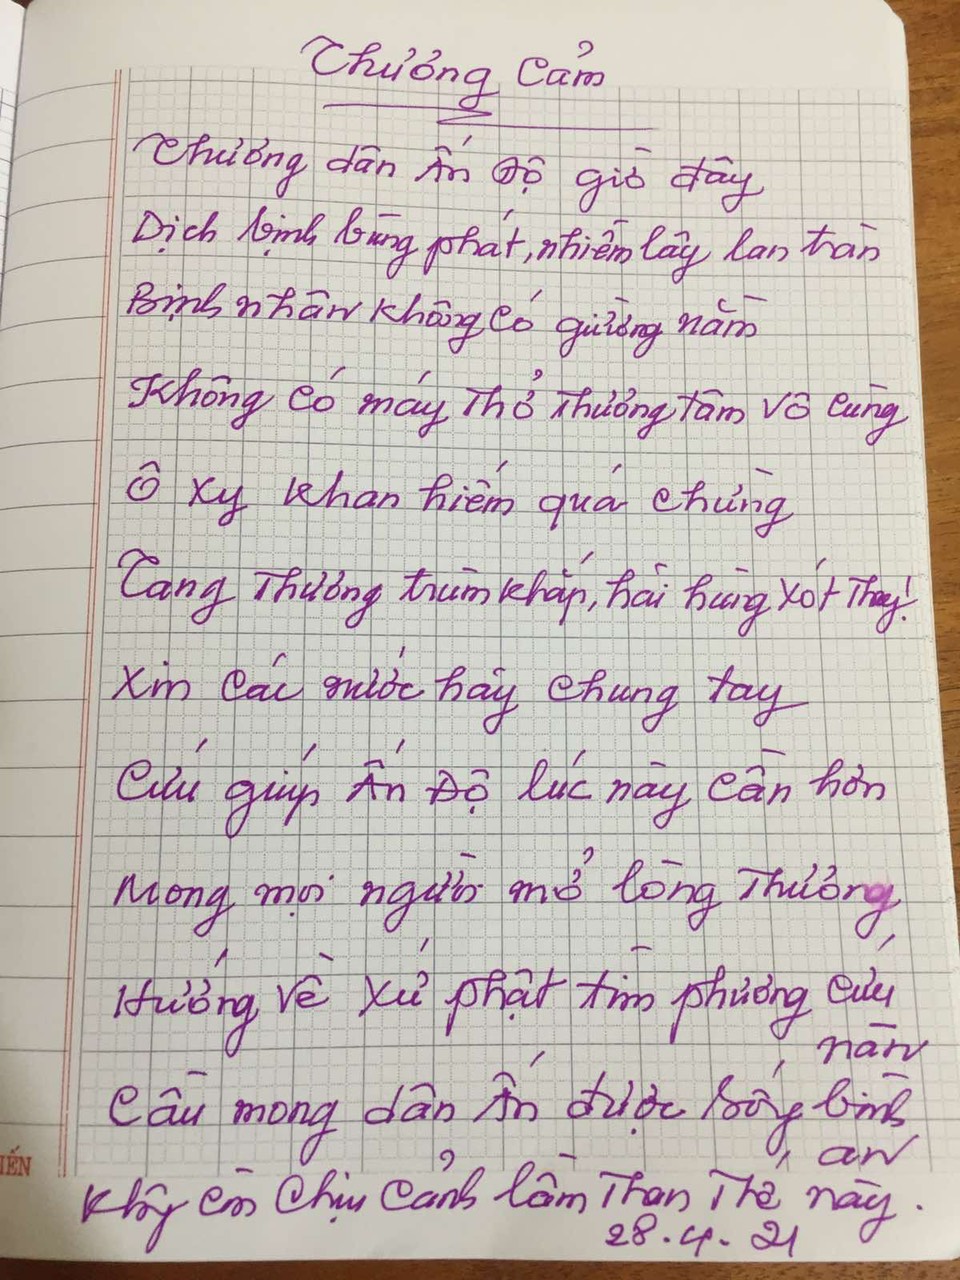 Thương Cảm
Thương dân Ấn Độ giờ đây
Dịch bịnh bùng phát, nhiễm lây lan tràn
Bịnh nhân không có giường nằm
Không có máy thở thương tâm vô cùng
Ô xy khan hiếm quá chừng
Tang thương trùm khắp, hãi hùng xót thay!
Xin các nước hãy chung tay
Cứu giúp Ấn Độ lúc này cần hơn
Mong mọi người mở lòng thương
Hướng về xứ phật tìm phương cứu
nàn
Cầu mong dân Ấn được sống bình
an
Khổng còn chịu cảnh lầm than thế này.
28.4.21
IẾN